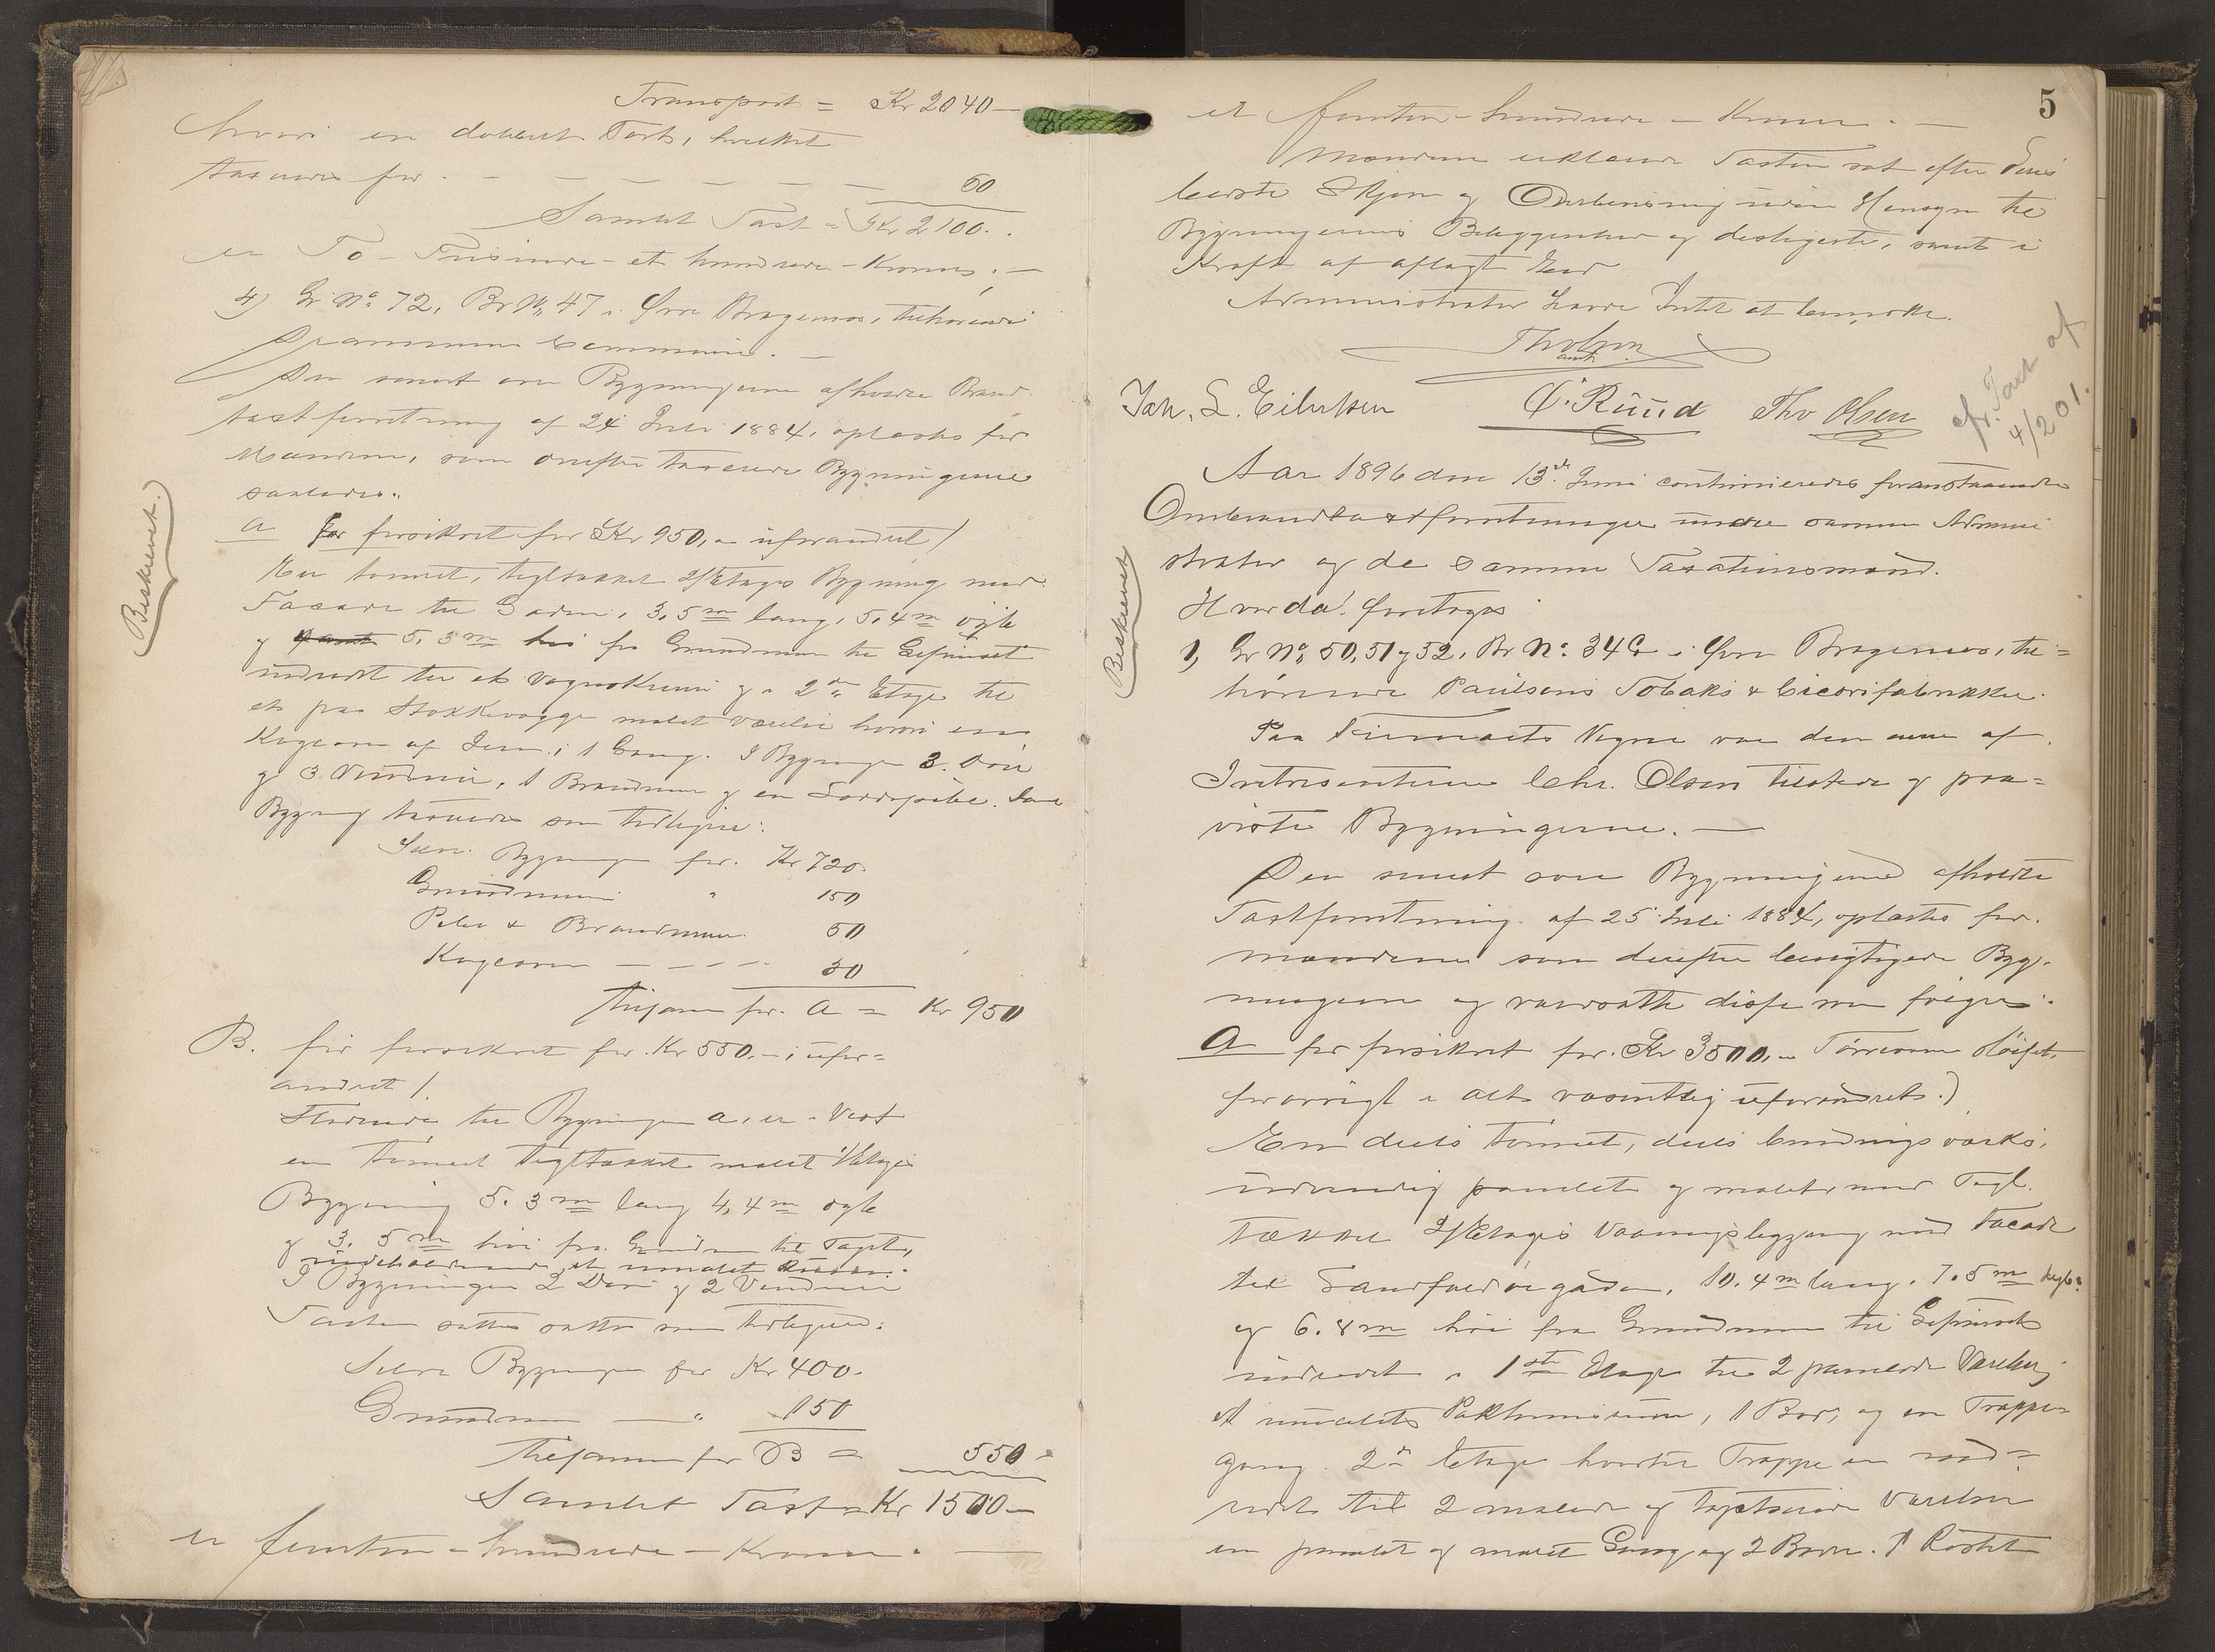 Transport = Kr 2040 —
hvori en dobbelt Port, hvilket
taxeredes for - — — — — — — 60
Samlet Taxt = Kr 2100.
er To - Tusinde - et hundrede - Kroner. —
4) Gr No 72, Br No 47 i Øvre Bragernes, tilhørende
Drammens Commune. —
Den senest over Bygningerne afholdte Brand-
taxtforretning af 24 Juli 1884, oplæstes for
Mændene, som derefter taxerede Bygningerne
saaledes:
Beskrevet.
a før forsikret for Kr 950, — uforandret /
En tømret, tegltækket 2/Etages Bygning med
Facade til Gaden, 3,5 m lang, 5,4 m dyb
og 5,3 m høi fra Grundmuren til Gesimset
indredet til et Vognskuur og i 2den Etage til
et paa Stokkevægge malet Værelse hvori en
Kogeovn af Jern; 1 Gang. I Bygningen 3 Døre
og 3 Vinduer, 1 Brandmur og en Pibe. Denne
Bygning taxeredes som tidligere:
Selve Bygningen for Kr 720.
Grundmuren " 150
Piber & Brandmure 50
Kogeovn — — — 30
tilsammen for a = Kr 950
B. før forsikret for Kr 550. — ; ufor=
andret /.
Stødende til Bygningen a, er i Vest
en tømret tegltækket malet 1/Etages
Bygning 5.3 m lang 4,4 m dyb
og 3.5 m høi fra Grunden til Taget,
indeholdende et umalet
I Bygningen 2 Døre og 2 Vinduer
Taxten sattes som tidligere:
Selve Bygningen for Kr 400.
Grundmur — " 150
tilsammen for B = 550
Samlet Taxt = Kr 1500 —
er femten - hundrede - Kroner. —
5
er femten - hundrede - Kroner. —
Mændene erklærede Taxten sat efter deres
bedste Skjøn og Overbevisning uden Hensyn til
Bygningernes Beliggenhed og desligeste, samt i
Kraft af aflagt Eed
Administrator havde Intet at bemærke.
Joh. L. Eilertsen Ruud Thv Olsen
cfr. Taxt af
4/2 01.
Aar 1896 den 13de Juni continueredes foranstaaende
Ombrandtaxtforretninger under samme Admini
strator og de samme Taxationsmænd.
Hvorda foretoges
Beskrevet
1, Gr No 50, 51 og 52, Br No 34 i Øvre Bragernes, til=
hørende Paulsens Tobaks & Cicorifabrikker.
Paa Firmaets Vegne var den ene af
Intressenterne Chr. Olsen tilstede og paa=
viste Bygningerne. —
Den senest over Bygningerne afholdte
Taxtforretning af 25 Juli 1884, oplæstes for
Mændene som derefter besigtigede Byg-
ningerne og værdsatte disse som følger:
a før forsikret for Kr 3500, —
forøvrigt i Alt væsentlig uforandret.)
En deels tømret, deels bindingsværks,
udvendig panelet og malet, med Tegl
tækket 2/Etages Vaaningsbygning med Facade
til gaden, 10.4 m lang, 7.5 m dyb
og 6.8 m høi fra Grundmuren til Gesimset
indredet i 1ste Etage til 2 panelede Værelser,
et umalet, 1 Bod, og en Trappe=
gang. 2den Etage hvortil Trappe er ind=
redet til 2 malede og tapetserede Værelser
en panelet og malet Gang og 2 Boder.